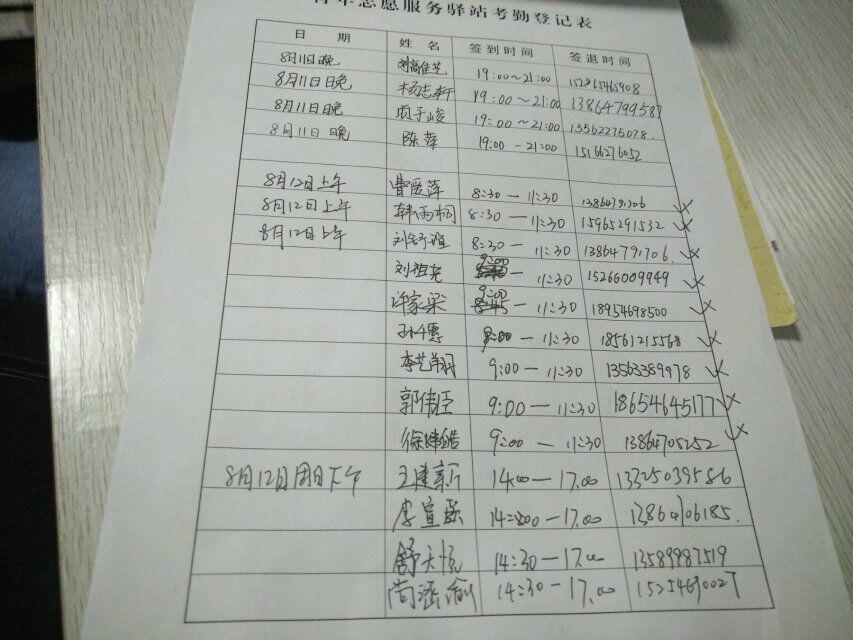 青年志愿服务驿站考勤登记表
日 期 姓 名 签到时间 签退时间
8月11日晚 刘高佳艺 19:00~21:00 15
8月11日晚 杨志轩 19:00~21:00 13864799587
8月11日晚 项子峻 19:00~21:00 13562275078.
8月11日晚 陈萍 19:00-21:00 15166276052
8月12日上午 曹钰萍 8:30-11:30
8月12日上午 韩雨桐 8:30-11:30 15965291532
8月12日上午 8:30-11:30 13864791706.
刘祖尧 9:00-11:30 15266009949
许家梁 9:00-11:30 18954698500
孙千惠 9:00-11:30 18561215568
李艺翔 9:00-11:30 13563389978
郭倩 9:00-11:30 18654645177
徐 皓 9:00-11:30 13864705252
8月12日周日下午 王建新 14:00-17.00 13325039586
李宣 14:00-17.00
舒天悦 14:30-17.00 13589987519
尚涵 14:30-17.00 15254690027